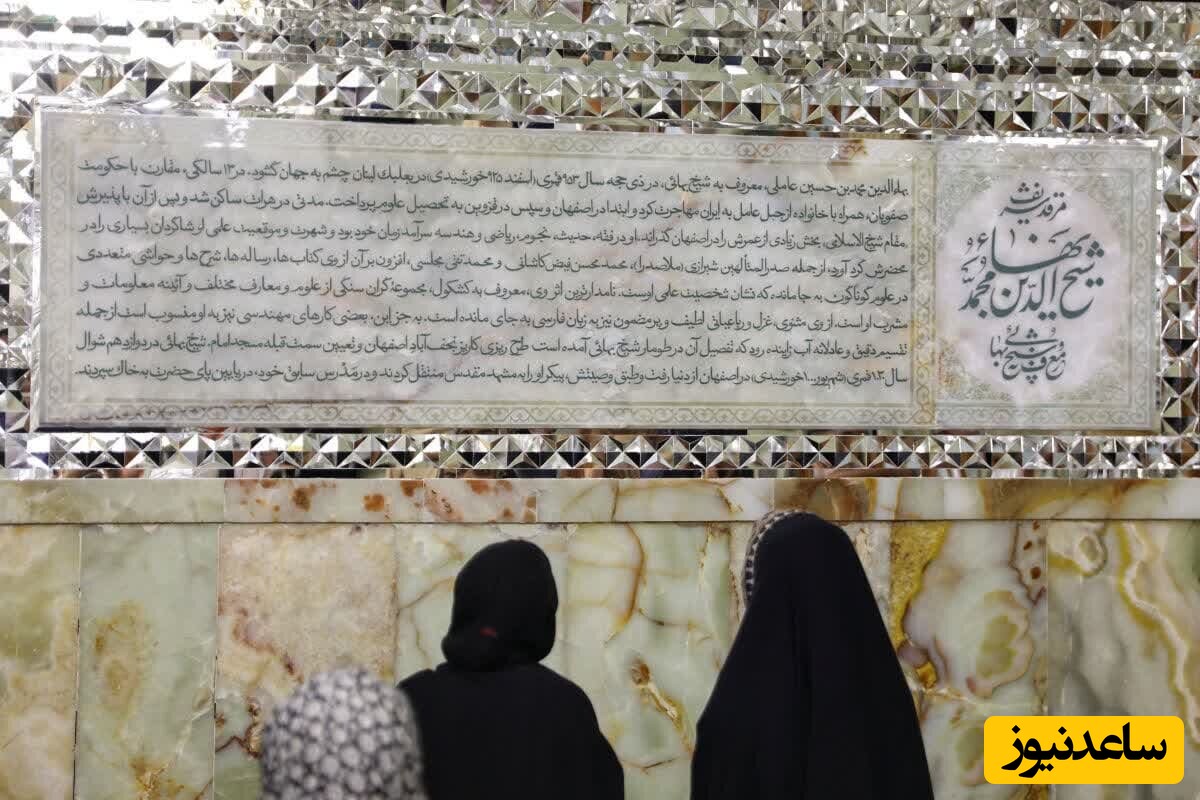 مرقد شریف
شیخ بهاء الدین محمد
معروف به شیخ بهائی
بهاءالدین محمد بن حسین عاملی، معروف به شیخ بهائی، در ذی حجه سال ۹۵۳ قمری (اسفند ۹۲۵ خورشیدی) در بعلبک لبنان چشم به جهان گشود. در ۱۳ سالگی، مقارن با حکومت
صفویان، همراه با خانواده از جبل عامل به ایران مهاجرت کرد و ابتدا در اصفهان و سپس در قزوین به تحصیل علوم پرداخت. مدتی در هرات ساکن شد و پس از آن با پذیرش
مقام شیخ الاسلامی، بخش زیادی از عمرش را در اصفهان گذراند. او در فقه، حدیث، نجوم، ریاضی و هندسه سرآمد زمان خود بود و شهرت و موقعیت علمی او شاگردان بسیاری را در
محضرش گرد آورد، از جمله صدرالمتألهین شیرازی (ملاصدرا)، محمد محسن فیض کاشانی و محمد تقی مجلسی. افزون بر آن از وی کتاب‌ها، رساله‌ها، شرح‌ها و حواشی متعددی
در علوم گوناگون به جا مانده که نشان شخصیت علمی اوست. نامدارترین اثر وی، معروف به کشکول، مجموعه گران سنگی از علوم و معارف مختلف و آئینه معلومات و
مشرب او است. از وی مثنوی، غزل و رباعیاتی لطیف و پر مضمون نیز به زبان فارسی به جای مانده است. به جز این، بعضی کارهای مهندسی نیز به او منسوب است از جمله
تقسیم دقیق و عادلانه آب زاینده رود که تفصیل آن در طومار شیخ بهائی آمده است طرح ریزی کاریز نجف آباد اصفهان و تعیین سمت قبله مسجد امام. شیخ بهائی در دوازدهم شوال
سال ۱۰۳۰ قمری (شهریور ۱۰۰۰ خورشیدی) در اصفهان از دنیا رفت و طبق وصیتش، پیکر او را به مشهد مقدس منتقل کردند و در مَدْرَس سابق خود، در پایین پای حضرت به خاک سپردند.
ساعدنیوز